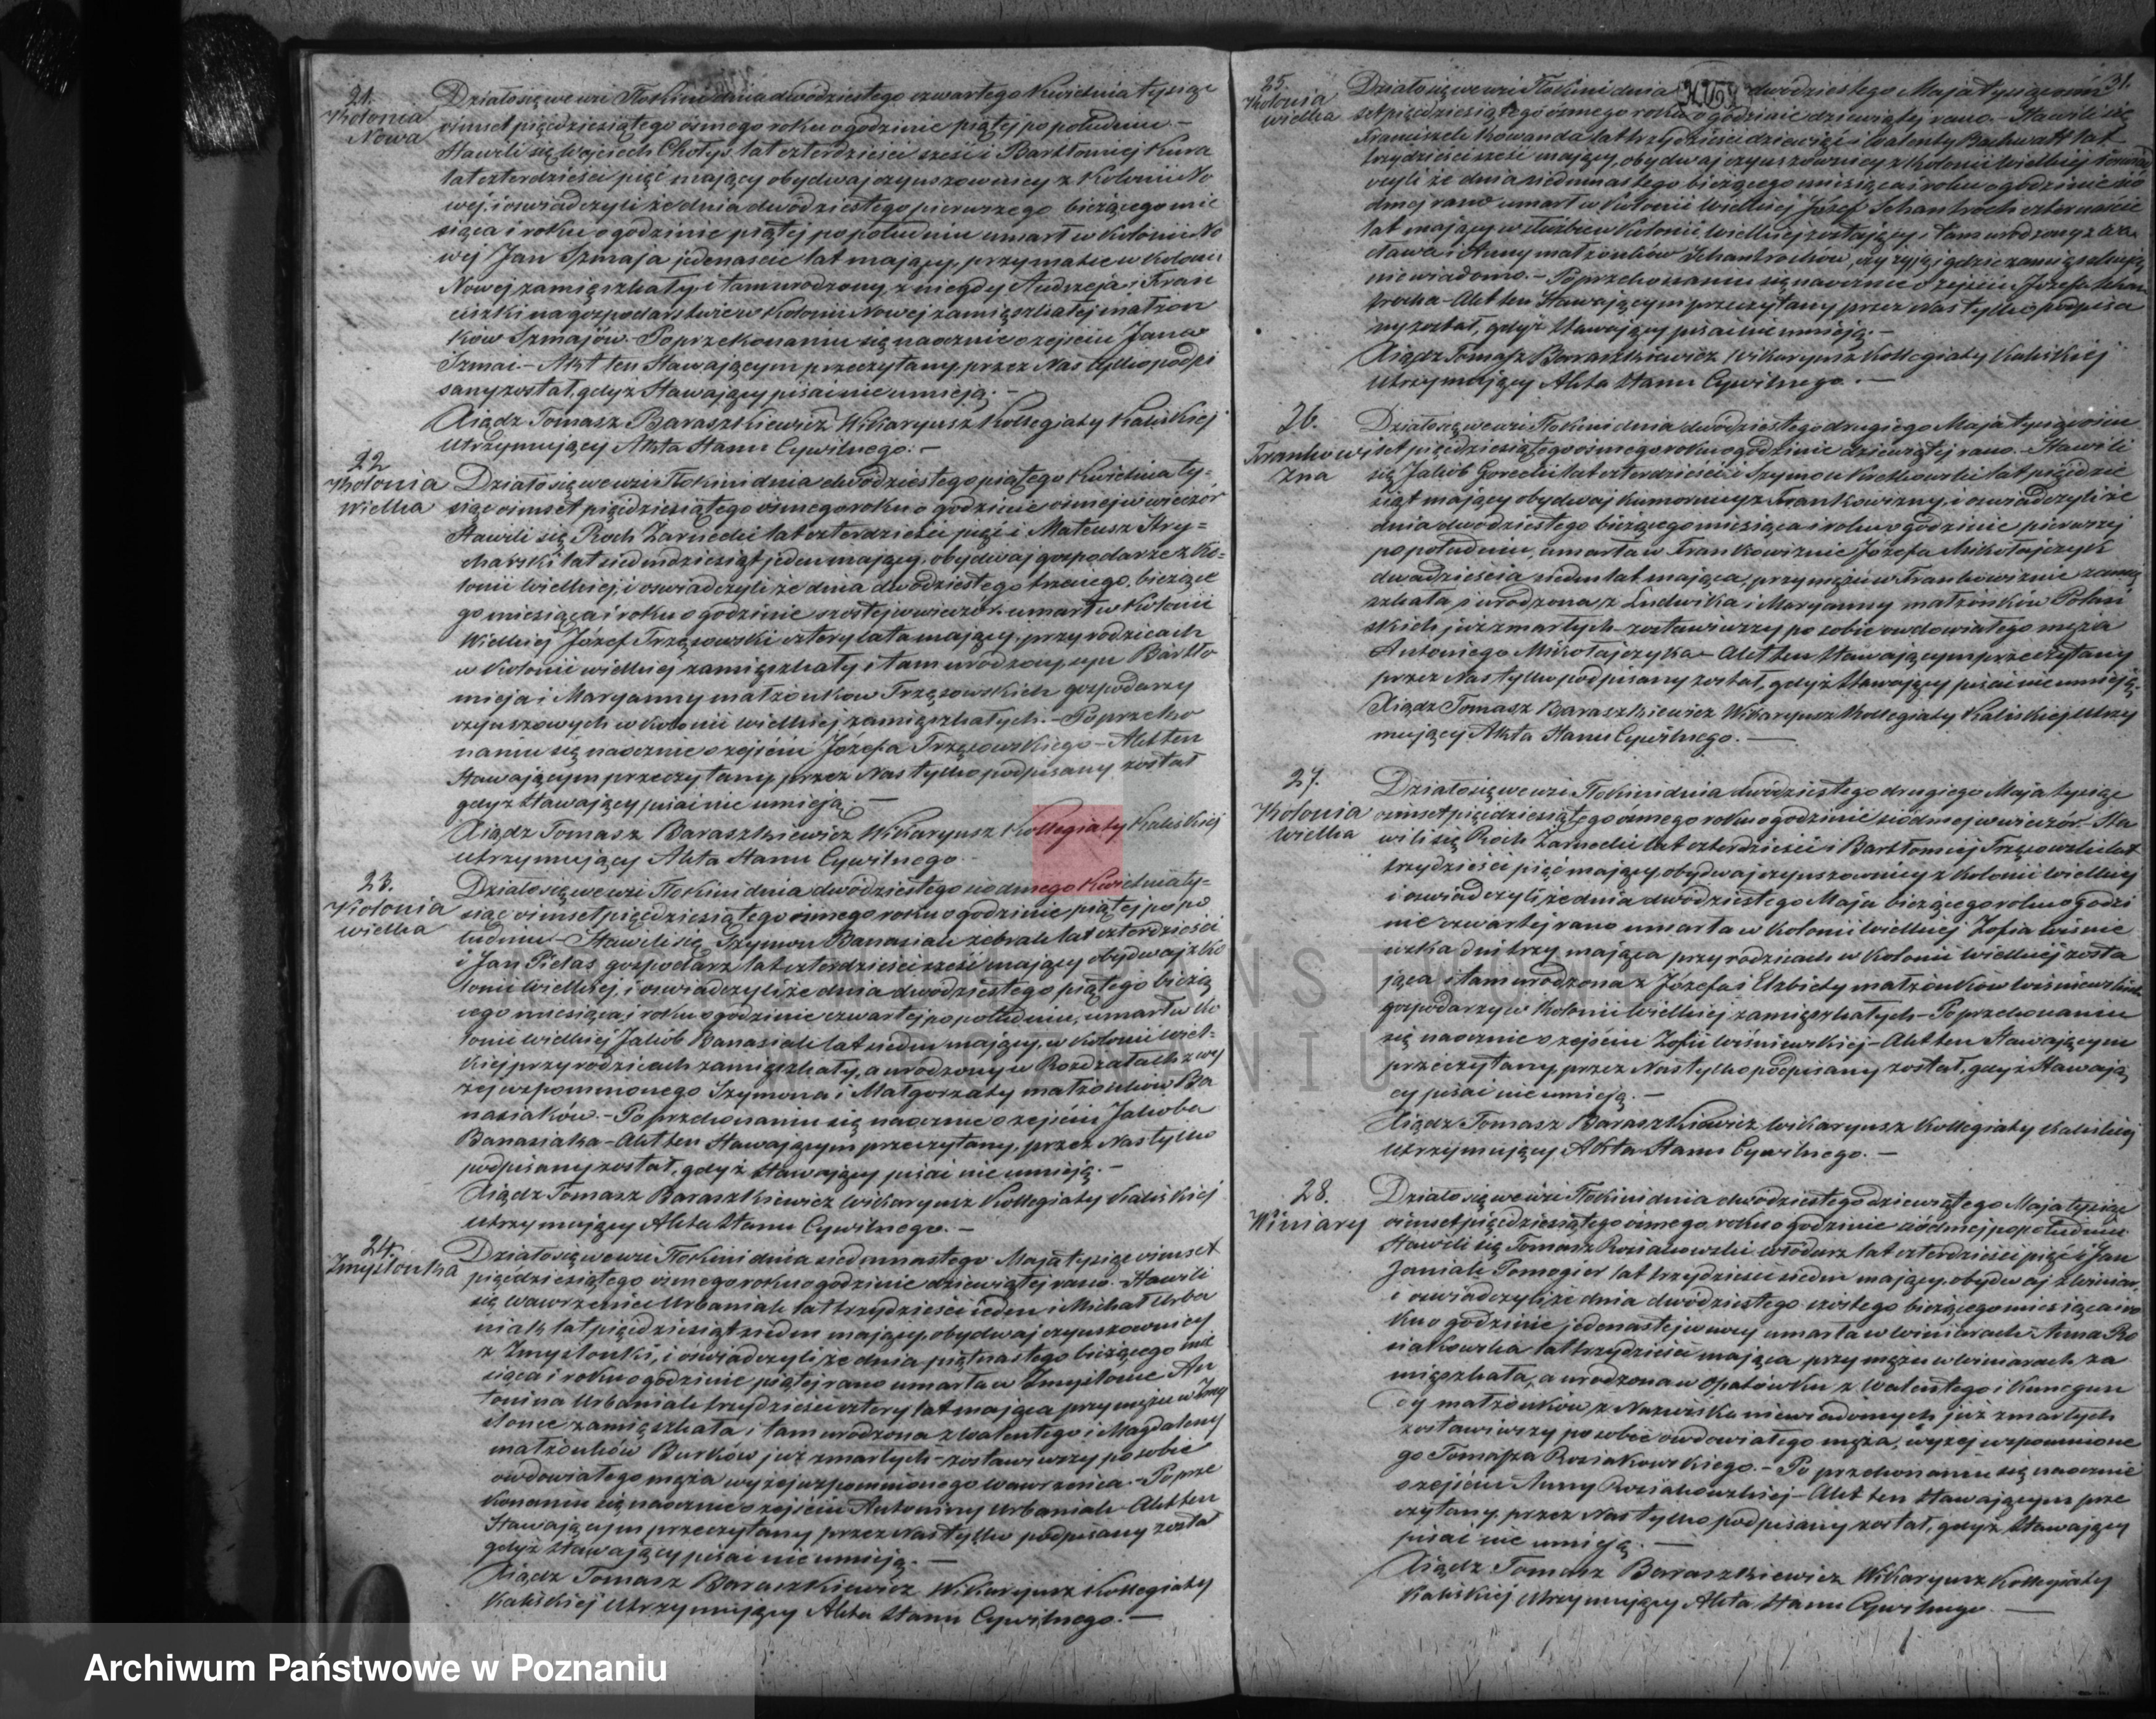 21.
Kolonia
Nowa
Działo się we wsi Tłokini dnia dwódziestego czwartego Kwietnia tysiąc
ośmset pięćdziesiątego ósmego roku o godzinie piątej po południu.-
Stawili się Wojciech Chotys lat czterdzieści sześć i Bartłomiej Kura
lat czterdzieści pięć mający obydwaj czynszownicy z Kolonii No
wej, i oswiadczyli że dnia dwódziestego pierwszego bieżącego mie
siąca i roku o godzinie piątej po południu umarł w Kolonii No
wej Jan Szmaja jedenaście lat mający, przy matce w Kolonii
Nowej zamięszkały i tam urodzony, z niegdy Andrzeja i Fran
ciszki na gospodarstwie w Kolonii Nowej zamięszkałej małżon
ków Szmajów. Po przekonaniu się naocznie o zejściu Jana
Szmai.- Akt ten Stawającym przeczytany, przez Nas tylko podpi
sany został, gdyż Stawający pisać nie umieją.-
Xiądz Tomasz Baraszkiewicz Wikaryusz Kollegiaty Kaliskiej
Utrzymujący Akta Stanu Cywilnego.-
22
Kolonia
Wielka
Działo się we wsi Tłokini dnia dwódziestego piątego Kwietnia ty=
siąc ośmset pięćdziesiątego ósmego roku o godzinie ósmej w wieczór
Stawili się Roch Zarnecki lat czterdzieści pięć i Mateusz Stry=
charski lat siedmdziesiąt jeden mający, obydwaj gospodarze z Ko=
lonii Wielkiej, i oswiadczyli że dnia dwódziestego trzeciego bieżące
go miesiąca i roku o godzinie szóstej w wieczór umarł w Kolonii
Wielkiej Józef Trzęsowski cztery lata mający, przy rodzicach
w Kolonii wielkiej zamięszkały i tam urodzony, syn Bartło
mieja i Maryanny małżonków Trzęsowskich gospodarzy
czynszowych w Kolonii wielkiej zamięszkałych.- Po przeko
naniu się naocznie o zejściu Józefa Trzęsowskiego - Akt ten
Stawającym przeczytany, przez Nas tylko podpisany został
gdyż Stawający pisać nie umieją.-
Xiądz Tomasz Baraszkiewicz Wikaryusz Kollegiaty Kaliskiej
Utrzymujący Akta Stanu Cywilnego
23.
Kolonia
wielka
Działo się we wsi Tłokini dnia dwódziestego siódmego Kwietnia ty=
siąc ośmset pięćdziesiątego ósmego roku o godzinie piątej po po
łudniu - Stawili się Szymon Banasiak żebrak lat czterdzieści
i Jan Pietas gospodarz lat czterdzieści sześć mający obydwaj z Ko
lonii Wielkiej, i oswiadczyli że dnia dwódziestego piątego bieżą
cego miesiąca i roku o godzinie czwartej po południu, umarł w Ko
lonii wielkiej Jakób Banasiak lat siedm mający, w Kolonii Wiel-
kiej przy rodzicach zamięszkały, a urodzony w Rozdzałach z wy
żej wspomnionego Szymona i Małgorzaty małżonków Ba
nasiaków.- Po przekonaniu się naocznie o zejściu Jakóba
Banasiaka - Akt ten Stawającym przeczytany, przez Nas tylko
podpisany został, gdyż Stawający pisać nie umieją.-
Xiądz Tomasz Baraszkiewicz Wikaryusz Kollegiaty Kaliskiej
Utrzymujący Akta Stanu Cywilnego.-
24.
Zmyslonka
Działo się we wsi Tłokini dnia siedmnastego Maja tysiąc ośmset
pięćdziesiątego ósmego roku o godzinie dziewiątej rano. Stawili
się Wawrzeniec Urbaniak lat trzydzieści jeden i Michał Urba
niak lat pięćdziesiąt siedm mający, obydwaj czynszownicy
z Zmyslonki, i oświadczyli że dnia piętnastego bieżącego mie
siąca i roku o godzinie piątej rano umarła w Zmyslonce An
tonina Urbaniak trzydzieści cztery lat mająca przy mężu w Zmy
slonce zamięszkała i tam urodzona z Walentego i Magdaleny
małżonków Burków już zmarłych - zostawiwszy po sobie
owdowiałego męża wyżej wspomnionego Wawrzeńca.- Po prze
konaniu się naocznie o zejściu Antoniny Urbaniak - Akt ten
Stawającym przeczytany przez Nas tylko podpisany został
gdyż Stawający pisać nie umieją.-
Xiądz Tomasz Baraszkiewicz Wikaryusz Kollegiaty
Kaliskiej Utrzymujący Akta Stanu Cywilnego.-
31.
25.
Kolonia
wielka
Działo się we wsi Tłokini dnia dwódziestego Maja tysiąc ośm
set pięćdziesiątego ósmego roku o godzinie dziewiątej rano.- Stawili się
Franciszek Kowanda lat trzydzieści dziewięć i Walenty Bachwatt lat
trzydzieści sześć mający, obydwaj czynszownicy z Kolonii Wielkiej i oswiad
czyli że dnia siedmnastego bieżącego miesiąca i roku o godzinie sió
dmej rano umarł w Kolonii Wielkiej Józef Schantroch czternaście
lat mający w służbie w Kolonii Wielkiej zostający, i tam urodzony z Wa
cława i Anny małżonków Schantrochów, czy żyją i gdzie zamięszkują
nie wiadomo.- Po przekonaniu się naocznie o zejściu Józefa Schan
trocha - Akt ten Stawającym przeczytany przez Nas tylko podpisa
ny został, gdyż Stawający pisać nie umieją.-
Xiądz Tomasz Baraszkiewicz Wikaryusz Kollegiaty Kaliskiej
Utrzymujący Akta Stanu Cywilnego.-
26.
Frankowi
zna
Działo się we wsi Tłokini dnia dwódziestego drugiego Maja tysiąc ośm
set pięćdziesiątego ósmego roku o godzinie dziewiątej rano.- Stawili
się Jakób Gorecki lat czterdzieści i Szymon Kietkowski lat pięćdzie
siąt mający obydwaj Kumornicy z Frankowizny, i oswiadczyli że
dnia dwódziestego bieżącego miesiąca i roku o godzinie pierwszej
po południu, umarła w Frankowiznie Józefa Mikołajczyk
dwadzieścia siedm lat mająca, przy mężu w Frankowiznie zamię
szkała, urodzona z Ludwika i Maryanny małżonków Polań
skich już zmarłych - zostawiwszy po sobie owdowiałego męża
Antoniego Mikołajczyka - Akt ten Stawającym przeczytany
przez Nas tylko podpisany został, gdyż Stawający pisać nie umieją.
Xiądz Tomasz Baraszkiewicz Wikaryusz Kollegiaty Kaliskiej Utrzy
mujący Akta Stanu Cywilnego.-
27.
Kolonia
Wielka
Działo się we wsi Tłokini dnia dwódziestego drugiego Maja tysiąc
ośmset pięćdziesiątego ósmego roku o godzinie siódmej w wieczór.- Sta
wili się Roch Zarnecki lat czterdzieści i Bartłomiej Trzęsowski lat
trzydzieści pięć mający, obydwaj czynszownicy z Kolonii Wielkiej
i oswiadczyli, że dnia dwódziestego Maja bieżącego roku o godzi
nie czwartej rano umarła w Kolonii Wielkiej Zofia Wiśnie
wska dni trzy mająca przy rodzicach w Kolonii Wielkiej zosta
jąca i tam urodzona z Józefa i Elzbiety małżonków Wiśniewskich
gospodarzy w Kolonii Wielkiej zamięszkałych - Po przekonaniu
się naocznie o zejściu Zofii Wiśniewskiej - Akt ten Stawającym
przeczytany, przez Nas tylko podpisany został, gdyż Stawają
cy pisać nie umieją.-
Xiądz Tomasz Baraszkiewicz Wikaryusz Kollegiaty Kaliskiej
Utrzymujący Akta Stanu Cywilnego.-
28.
Winiary
Działo się we wsi Tłokini dnia dwódziestego dziewiątego Maja tysiąc
ośmset pięćdziesiątego ósmego roku o godzinie siódmej po południu
Stawili się Tomasz Rosiakowski włodarz lat czterdzieści pięć i Jan
Janiak Pomogier lat trzydzieści siedm mający, obydwaj z Winiar,
i oswiadczyli że dnia dwódziestego szóstego bieżącego miesiąca i ro
ku o godzinie jedenastej w nocy umarła w Winiarach Anna Ro
siakowska lat trzydzieści mająca, przy mężu w Winiarach za
mięszkała, a urodzona w Opatówku z Walentego i Kunegun
dy małżonków z Nazwiska niewiadomych już zmarłych
zostawiwszy po sobie owdowiałego męża, wyżej wspomnione
go Tomasza Rosiakowskiego.- Po przekonaniu się naocznie
o zejściu Anny Rosiakowskiej - Akt ten Stawającym prze
czytany, przez Nas tylko podpisany został, gdyż Stawający
pisać nie umieją.-
Xiądz Tomasz Baraszkiewicz Wikaryusz Kollegiaty
Kaliskiej Utrzymujący Akta Stanu Cywilnego.
Archiwum Państwowe w Poznaniu